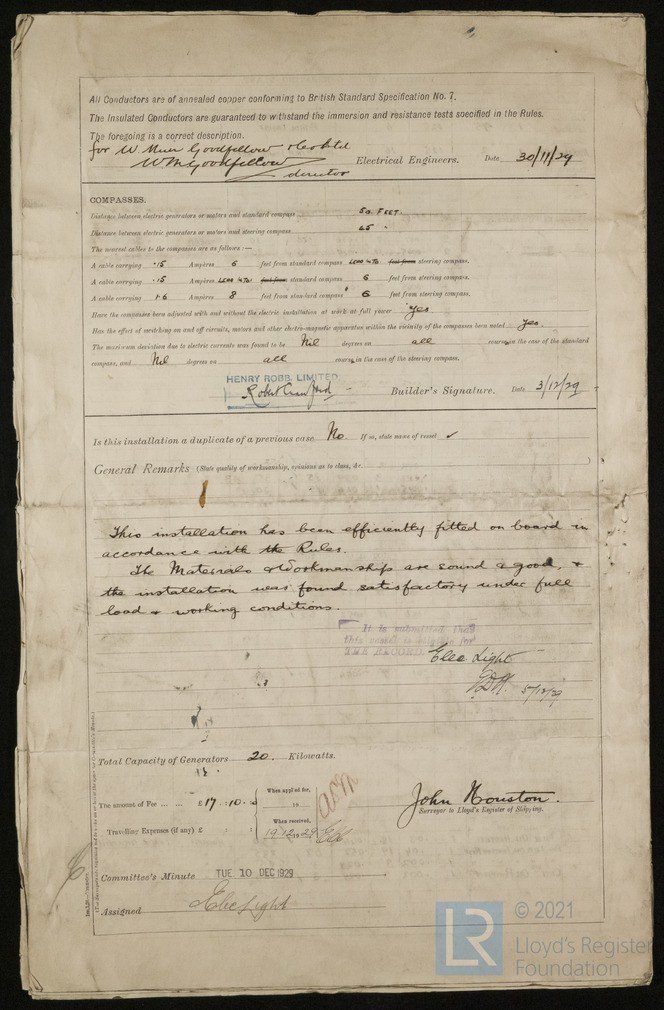 All Conductors are of annealed copper conforming to British Standard Specification No. 7.
The Insulated Conductors are guaranteed to withstand the immersion and resistance tests specified in the Rules.
The foregoing is a correct description.
for W. Muir Goodfellow
W M Goodfellow Electrical Engineers. Date 30/11/29
director
COMPASSES.
Distance between electric generators or motors and standard compass 50 FEET.
Distance between electric generators or motors and steering compass 45 "
The nearest cables to the compasses are as follows:—
A cable carrying .15 Ampères 6 feet from standard compass LESS 4 TO feet from steering compass.
A cable carrying .15 Ampères LESS 4 TO feet from standard compass 6 feet from steering compass.
A cable carrying 1.6 Ampères 8 feet from standard compass 6 feet from steering compass.
Have the compasses been adjusted with and without the electric installation at work at full power Yes
Has the effect of switching on and off circuits, motors and other electro-magnetic apparatus within the vicinity of the compasses been noted Yes.
The maximum deviation due to electric currents was found to be Nil degrees on all course in the case of the standard
compass, and Nil degrees on all course in the case of the steering compass.
HENRY ROBB, LIMITED
Robert Crawford Builder's Signature. Date 3/12/29
Is this installation a duplicate of a previous case No If so, state name of vessel ✓
General Remarks (State quality of workmanship, opinions as to class, &c. )
This installation has been efficiently fitted on board in
accordance with the Rules.
The Materials & Workmanship are sound & good, &
the installation was found satisfactory under full
load & working conditions.
It is submitted that
this vessel is eligible for
THE RECORD. Elec Light
5/12/29
Total Capacity of Generators 20. Kilowatts.
The amount of Fee ... ... £17 : 10 :
When applied for,
19
Travelling Expenses (if any) £ : :
When received,
19.12.1929
John Houston.
Surveyor to Lloyd's Register of Shipping.
Committee's Minute TUE 10 DEC 1929
Assigned Elec Light
LR © 2021
Lloyd's Register
Foundation